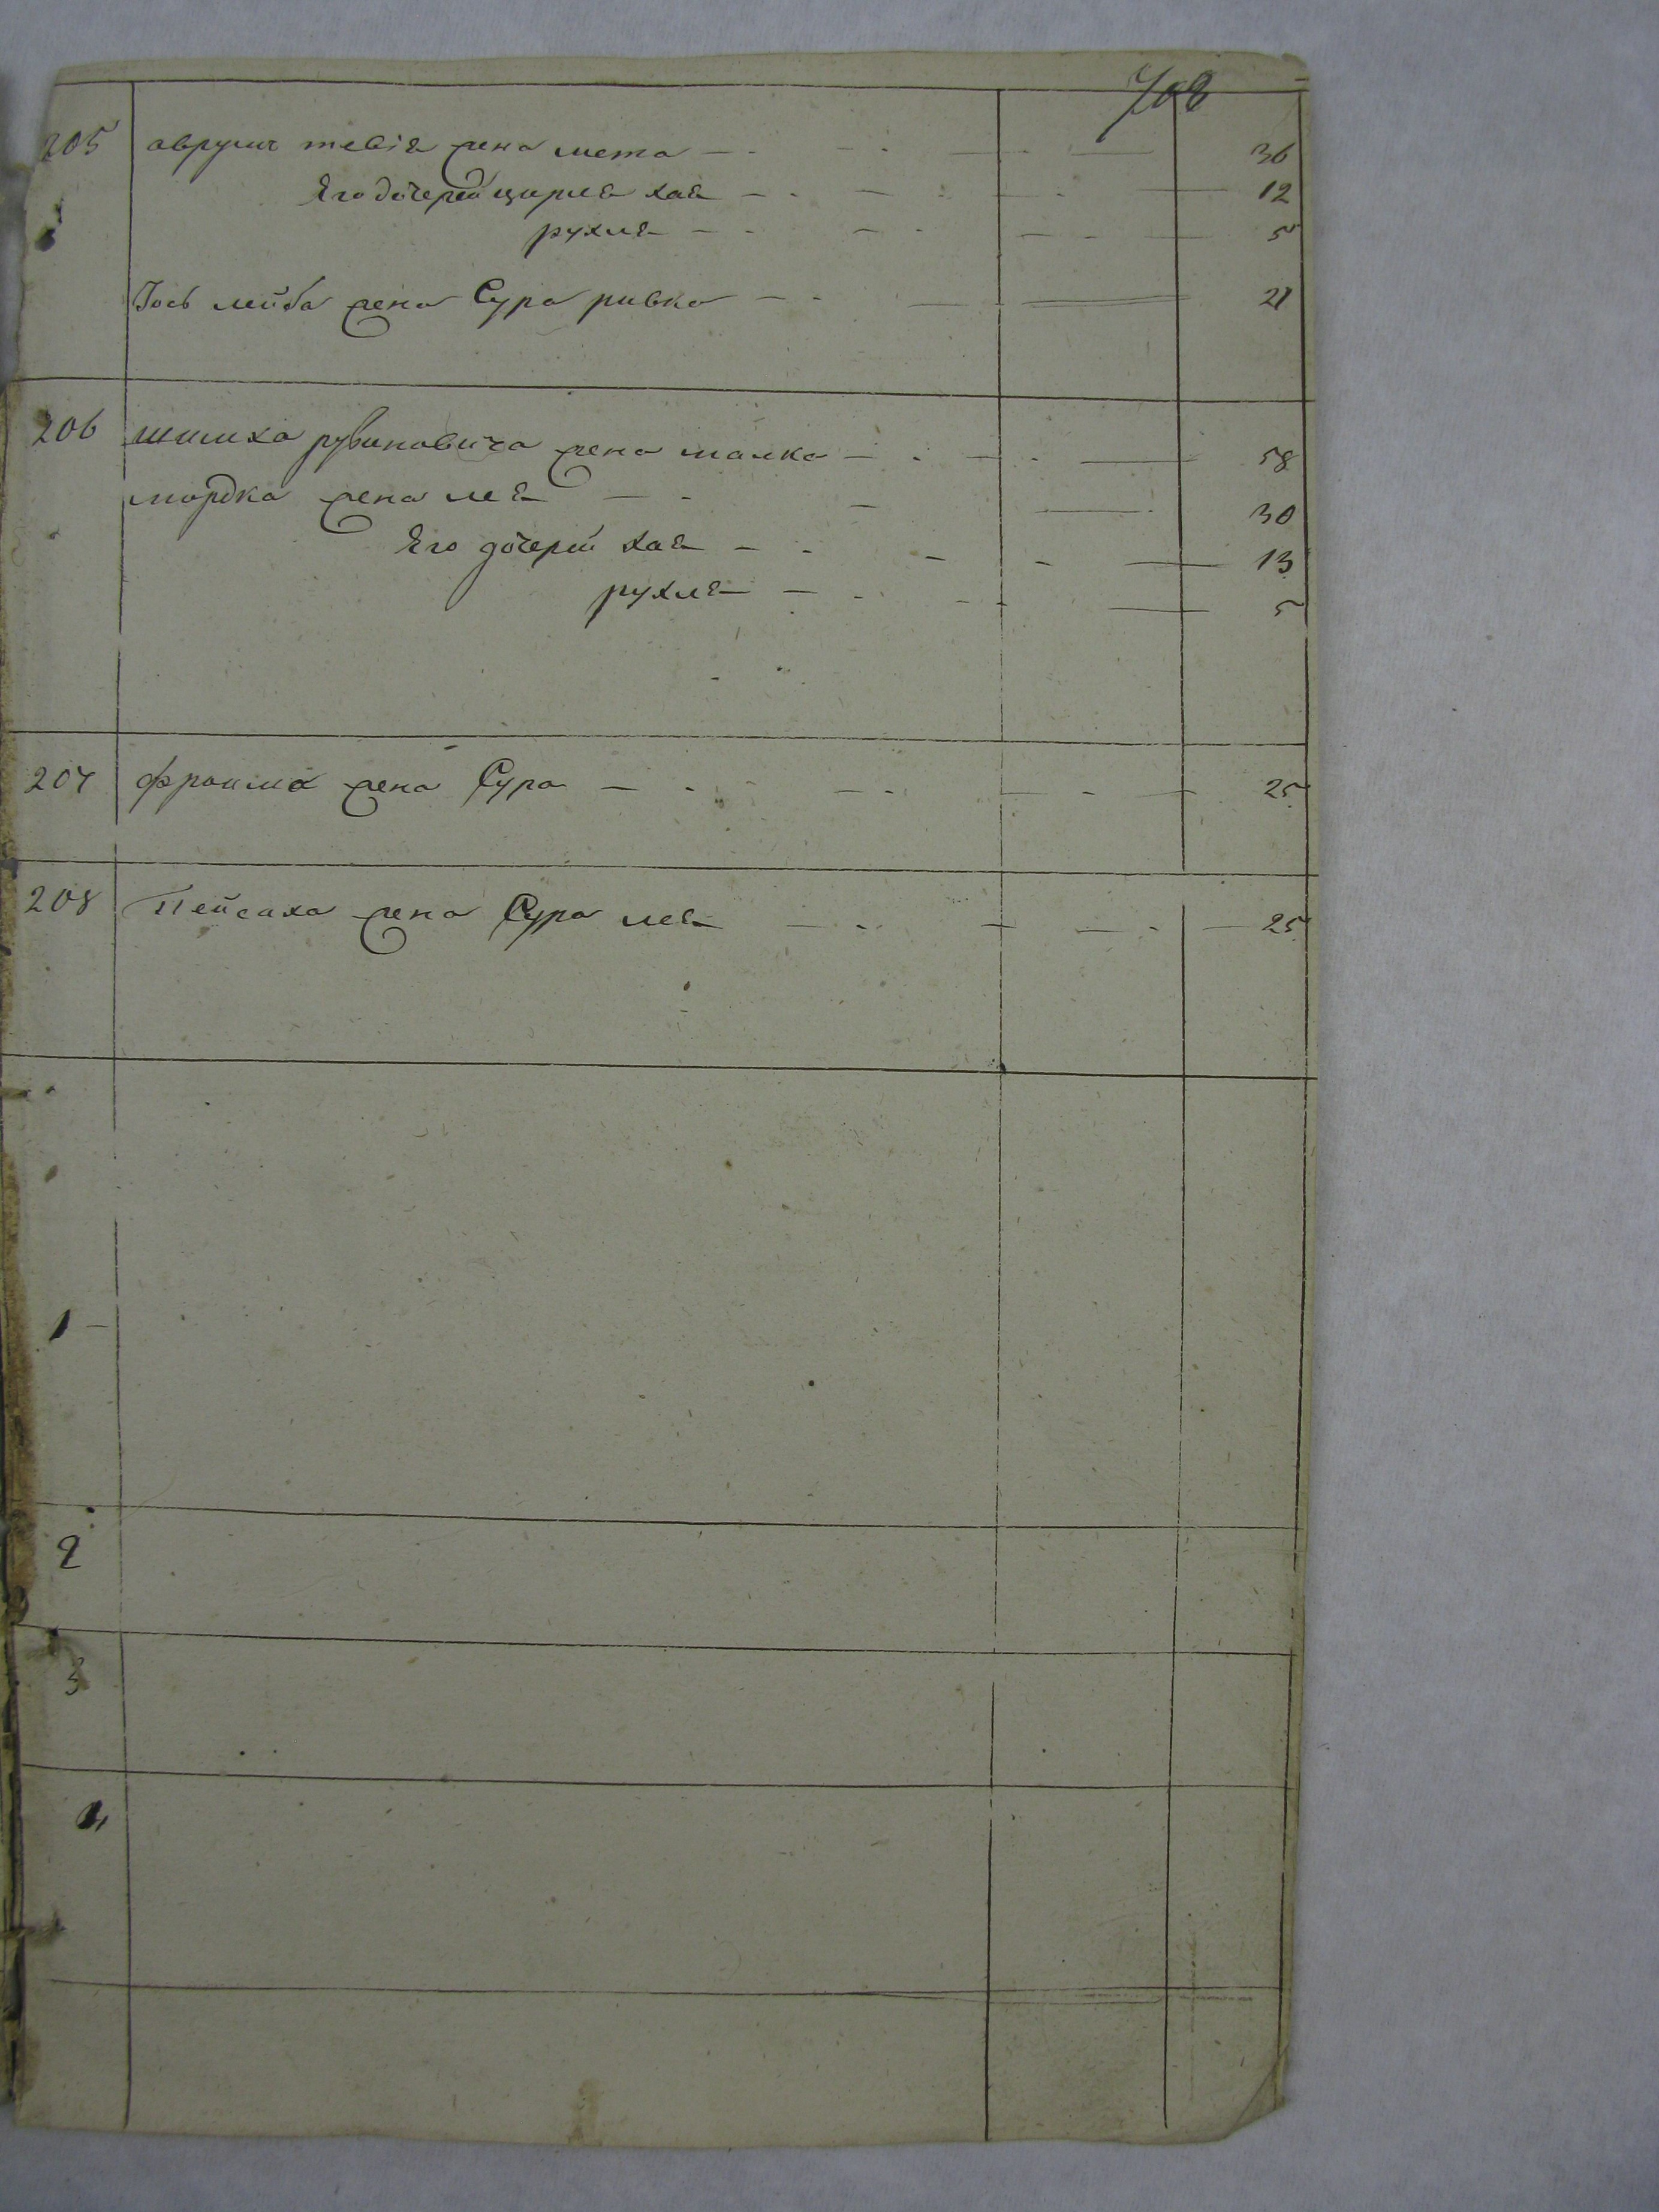 708
205 аврумъ тевія жена мета 36
Его дочерей цирля хая 12
рухля 5
Іось лейба жена Сура ривка 21
206 шлиха рувиновича жена малка 58
мордка жена лея 30
Его дочерей хая 13
рухля 5
207 фроима жена Сура 25
208 Пейсаха жена Сура лея 25
1
2
3
4